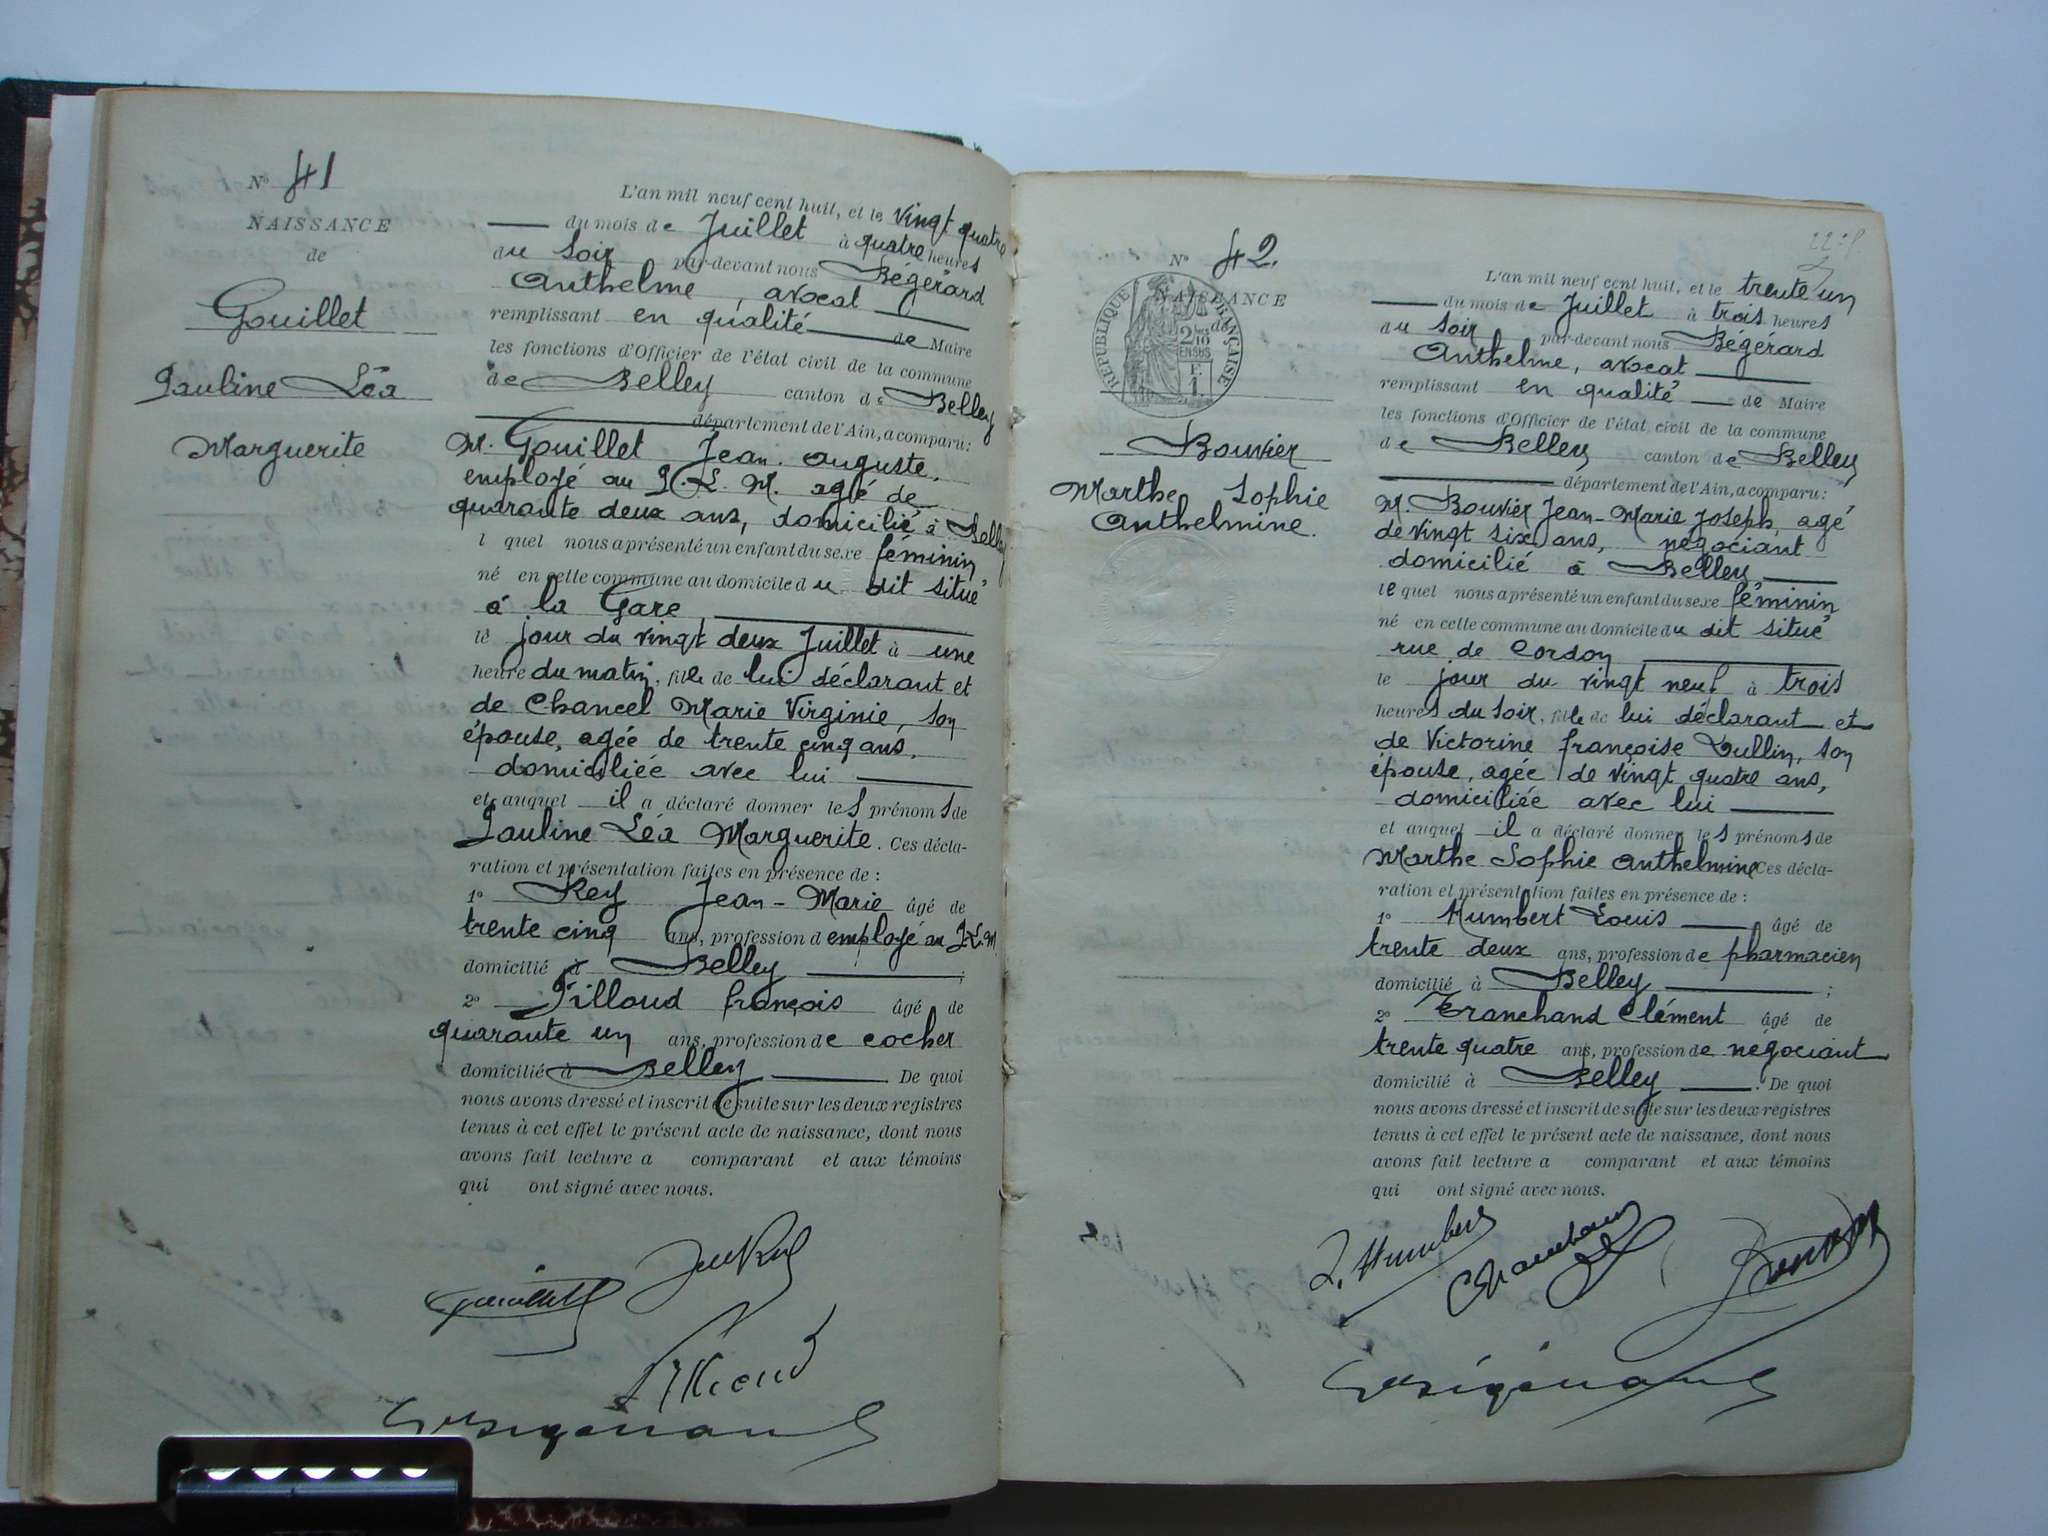 N° 41
NAISSANCE
de
Gouillet
Pauline Léa
Marguerite
L'an mil neuf cent huit, et le vingt quatre
du mois de Juillet à quatre heures
du soir par-devant nous Bégérard
Anthelme, avocat
remplissant en qualité de Maire
les fonctions d'Officier de l'état civil de la commune
de Belley canton de Belley
département de l'Ain, a comparu :
M. Gouillet Jean Auguste,
employé au P. L. M. agé de
quarante deux ans, domicilié à Belley
l quel nous a présenté un enfant du sexe féminin
né en cette commune au domicile du dit situé
à la Gare
le jour du vingt deux Juillet à une
heure du matin, fille de lui déclarant et
de Chancel Marie Virginie, son
épouse, agée de trente cinq ans,
domiciliée avec lui
et auquel il a déclaré donner les prénoms de
Pauline Léa Marguerite. Ces décla-
ration et présentation faites en présence de :
1° Rey Jean-Marie âgé de
trente cinq ans, profession d employé au P.L.M
domicilié à Belley ;
2° Pilloud françois âgé de
quarante un ans, profession de cocher
domicilié à Belley De quoi
nous avons dressé et inscrit de suite sur les deux registres
tenus à cet effet le présent acte de naissance, dont nous
avons fait lecture a comparant et aux témoins
qui ont signé avec nous.
N° 42.
NAISSANCE
de
RÉPUBLIQUE FRANÇAISE
2/10
EN SUS
F.
1.
Bouvier
Marthe Sophie
Anthelmine.
L'an mil neuf cent huit, et le trente un
du mois de Juillet à trois heures
du soir par-devant nous Bégérard
Anthelme, avocat
remplissant en qualité de Maire
les fonctions d'Officier de l'état civil de la commune
de Belley canton de Belley
département de l'Ain, a comparu :
M. Bouvier Jean-Marie Joseph, agé
de vingt six ans, négociant
domicilié à Belley
le quel nous a présenté un enfant du sexe féminin
né en cette commune au domicile du dit situé
rue de Cordon
le jour du vingt neuf à trois
heures du soir, fille de lui déclarant et
de Victorine françoise Dullin, son
épouse, agée de vingt quatre ans,
domiciliée avec lui
et auquel il a déclaré donner les prénoms de
Marthe Sophie Anthelmine Ces décla-
ration et présentation faites en présence de :
1° Humbert Louis âgé de
trente deux ans, profession de pharmacien
domicilié à Belley ;
2° Tranchand Clément âgé de
trente quatre ans, profession de négociant
domicilié à Belley . De quoi
nous avons dressé et inscrit de suite sur les deux registres
tenus à cet effet le présent acte de naissance, dont nous
avons fait lecture a comparant et aux témoins
qui ont signé avec nous.
L. Humbert